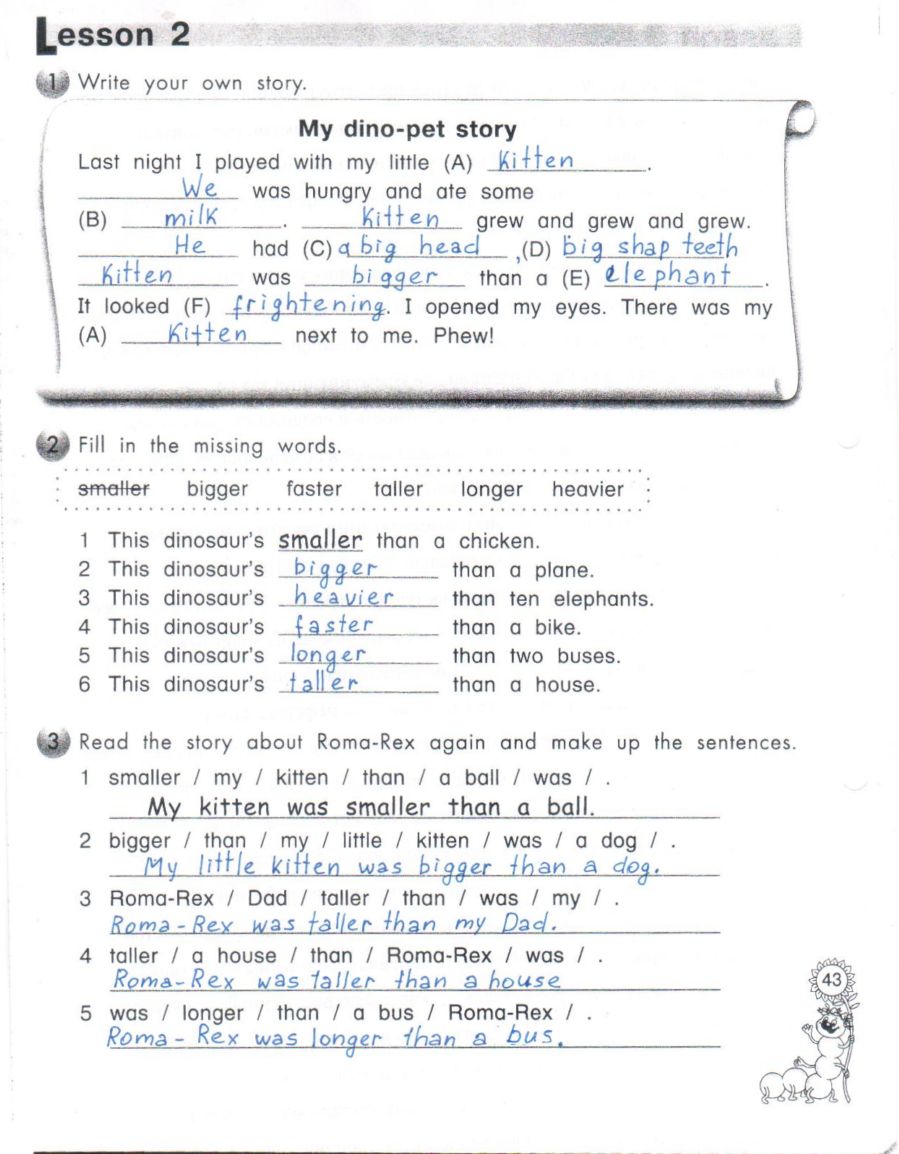 Lesson 2
1 Write your own story.
My dino-pet story
Last night I played with my little (A) Kitten.
We was hungry and ate some
(B) milk. Kitten grew and grew and grew.
He had (C) a big head, (D) big shap teeth
Kitten was bigger than a (E) elephant.
It looked (F) frightening. I opened my eyes. There was my
(A) Kitten next to me. Phew!
2 Fill in the missing words.
smaller bigger faster taller longer heavier
1 This dinosaur's smaller than a chicken.
2 This dinosaur's bigger than a plane.
3 This dinosaur's heavier than ten elephants.
4 This dinosaur's faster than a bike.
5 This dinosaur's longer than two buses.
6 This dinosaur's taller than a house.
3 Read the story about Roma-Rex again and make up the sentences.
1 smaller / my / kitten / than / a ball / was / .
My kitten was smaller than a ball.
2 bigger / than / my / little / kitten / was / a dog / .
My little kitten was bigger than a dog.
3 Roma-Rex / Dad / taller / than / was / my / .
Roma-Rex was taller than my Dad.
4 taller / a house / than / Roma-Rex / was / .
Roma-Rex was taller than a house
5 was / longer / than / a bus / Roma-Rex / .
Roma-Rex was longer than a bus.
43